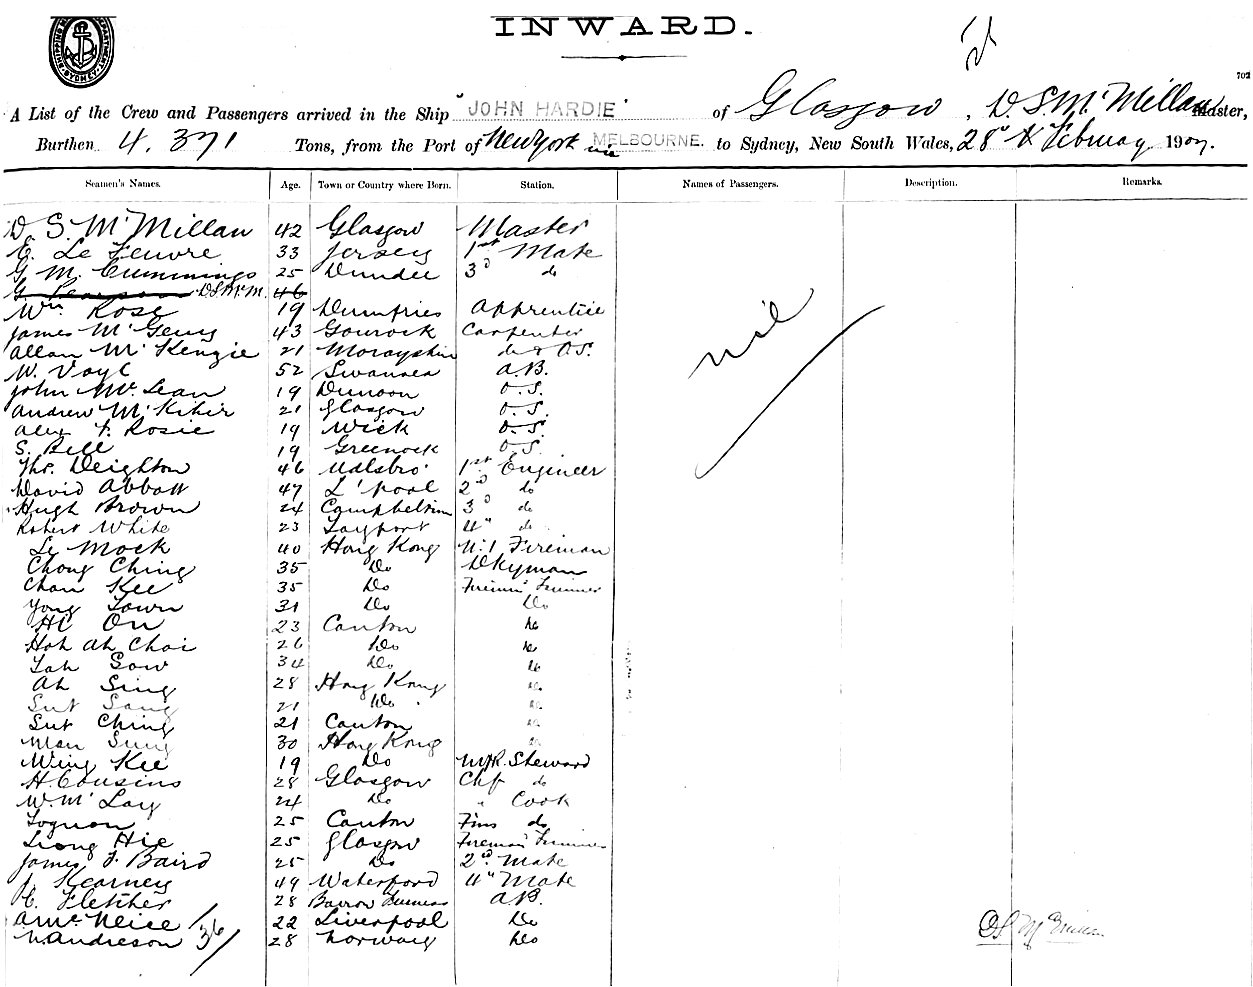 INWARD.
702
A List of the Crew and Passengers arrived in the Ship "JOHN HARDIE" of Glasgow, D. S. McMillan Master,
Burthen 4.371 Tons, from the Port of New York via MELBOURNE. to Sydney, New South Wales, 28th February 1907.
Seamen's Names. Age. Town or Country where Born. Station. Names of Passengers. Description. Remarks.
D. S. McMillan 42 Glasgow Master
C. Le Feuvre 33 Jersey 1st Mate
G M. Cummings 25 Dundee 3d do
G Pearson DSMcM. 46
Wm Rose 19 Dumfries Apprentice
nil
James McGeuy 43 Gourock Carpenter
Allan McKenzie 21 Morayshire do & O.S.
W. Voyl 52 Swansea A.B.
John McLean 19 Dunoon O.S.
Andrew McKibir 21 Glasgow O.S.
Alex F. Rosie 19 Wick O.S.
S. Bell 19 Greenock O.S.
Thos. Deighton 46 Mdlsbro' 1st Engineer
David Abbott 47 L'pool 2d do
Hugh Brown 24 Campbeltown 3d do
Robert White 23 Tayport 4th do
Le Mock 40 Hong Kong No. 1 Fireman
Chong Ching 35 Do Dkyman
Chan Kee 35 Do Fireman Trimmer
Yong Town 31 Do Do
Hi On 23 Canton do
Hoh Ah Choi 26 Do do
Tah Sow 34 Do do
Ah Sing 28 Hong Kong do
Sut Sang 21 Do do
Sut Ching 21 Canton do
Man Sung 30 Hong Kong do
Wing Kee 19 Do M/R. Steward
H. Cousins 28 Glasgow Chf do
W. McLay 24 Do " Cook
Toguon 25 Canton Fms do
Liong Hie 25 Glasgow Fireman Trimmer
James F. Baird 25 Do 2d Mate
J. Kearney 49 Waterford 4th Mate
C. Fletcher 28 Barrow Furness A.B.
A McNeice 22 Liverpool Do
N. Andreson 36 28 Norway Do
DS McMillan